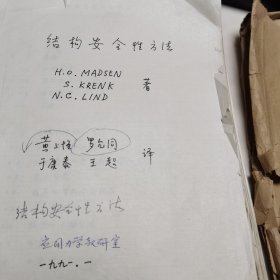 结构安全性方法
H.O. MADSEN
S. KRENK 著
N.C. LIND
黄 罗 同
于庚泰 王超 译
结构安全性方法
应用力学教研室
一九九一.一